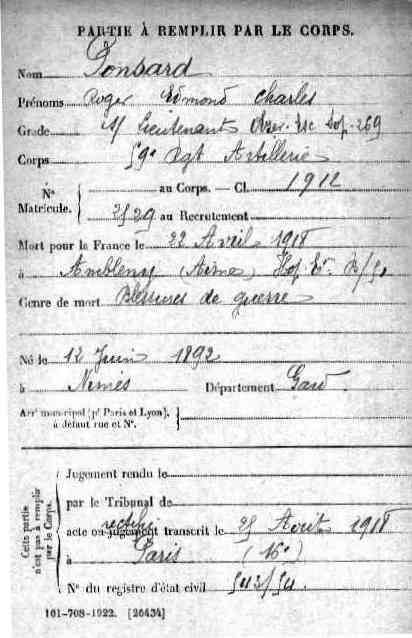 PARTIE À REMPLIR PAR LE CORPS.
Nom Ponsard
Prénoms Roger Edmond Charles
Grade S/ Lieutenant Obser. Esc Sop. 269
Corps 59e Rgt Artillerie
N° Matricule. { au Corps. — Cl. 1912
2529 au Recrutement
Mort pour la France le 22 Avril 1918
à Ambleny (Aisne) Hop. Et. B/50
Genre de mort Blessures de guerre
Né le 12 Juin 1892
à Nimes Département Gard.
Arrt municipal (pr Paris et Lyon), à défaut rue et N°. }
Cette partie n'est pas à remplir par le Corps.
Jugement rendu le
par le Tribunal de
rectifié
acte ou jugement transcrit le 25 Août 1918
à Paris (16e)
N° du registre d'état civil 542/54
101-708-1922. [26434]